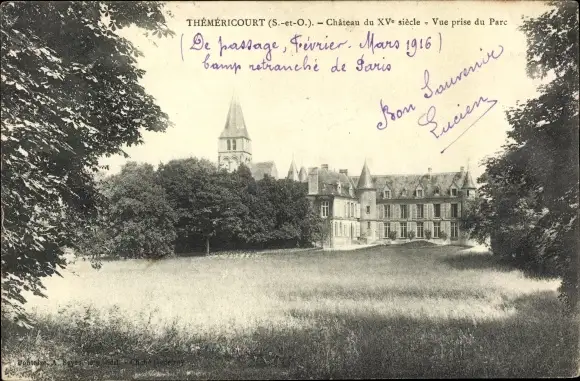 THÉMÉRICOURT (S.-et-O.). - Château du XVᵉ siècle - Vue prise du Parc
(De passage, Février - Mars 1916)
Camp retranché de Paris
Bon Souvenir
Lucien